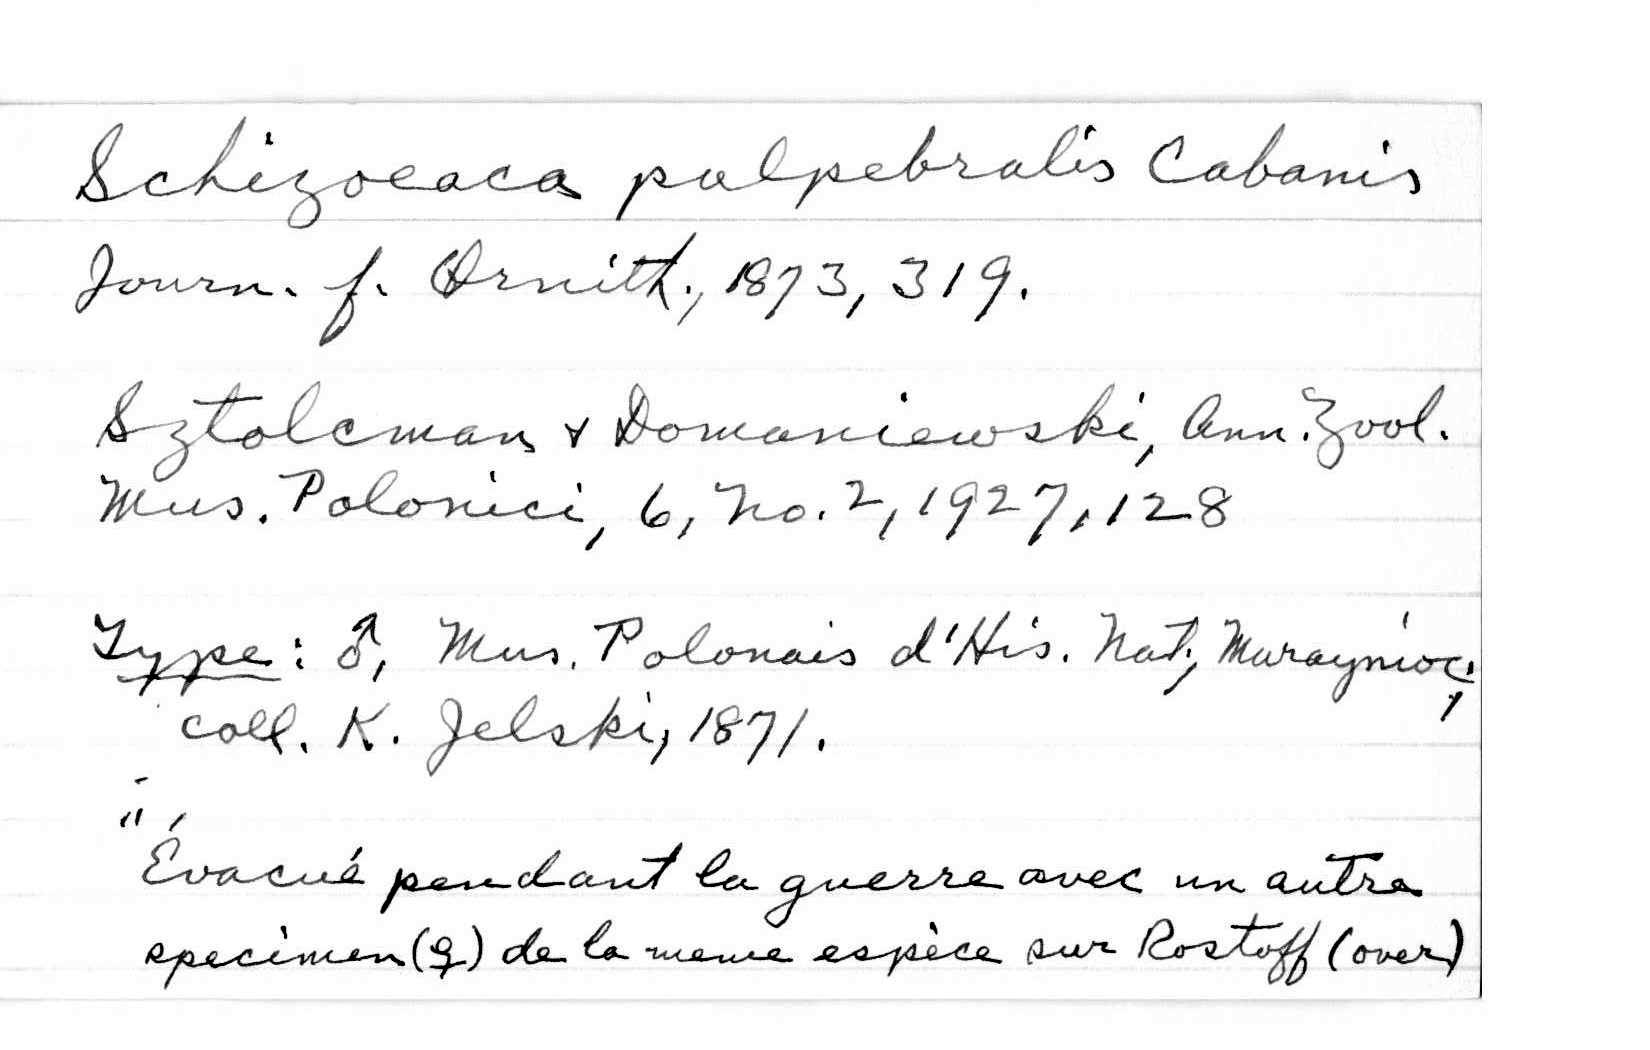 Schizoeaca palpebralis Cabanis
Journ. f. Ornith., 1873, 319.
Sztolcman & Domaniewski, Ann. Zool.
Mus. Polonici, 6, No. 2, 1927, 128
Type: ♂, Mus. Polonais d'His. Nat., Maraynioc,
coll. K. Jelski, 1871.
"Évacué pendant la guerre avec un autre
specimen (♀) de la meme espèce sur Rostoff (over)